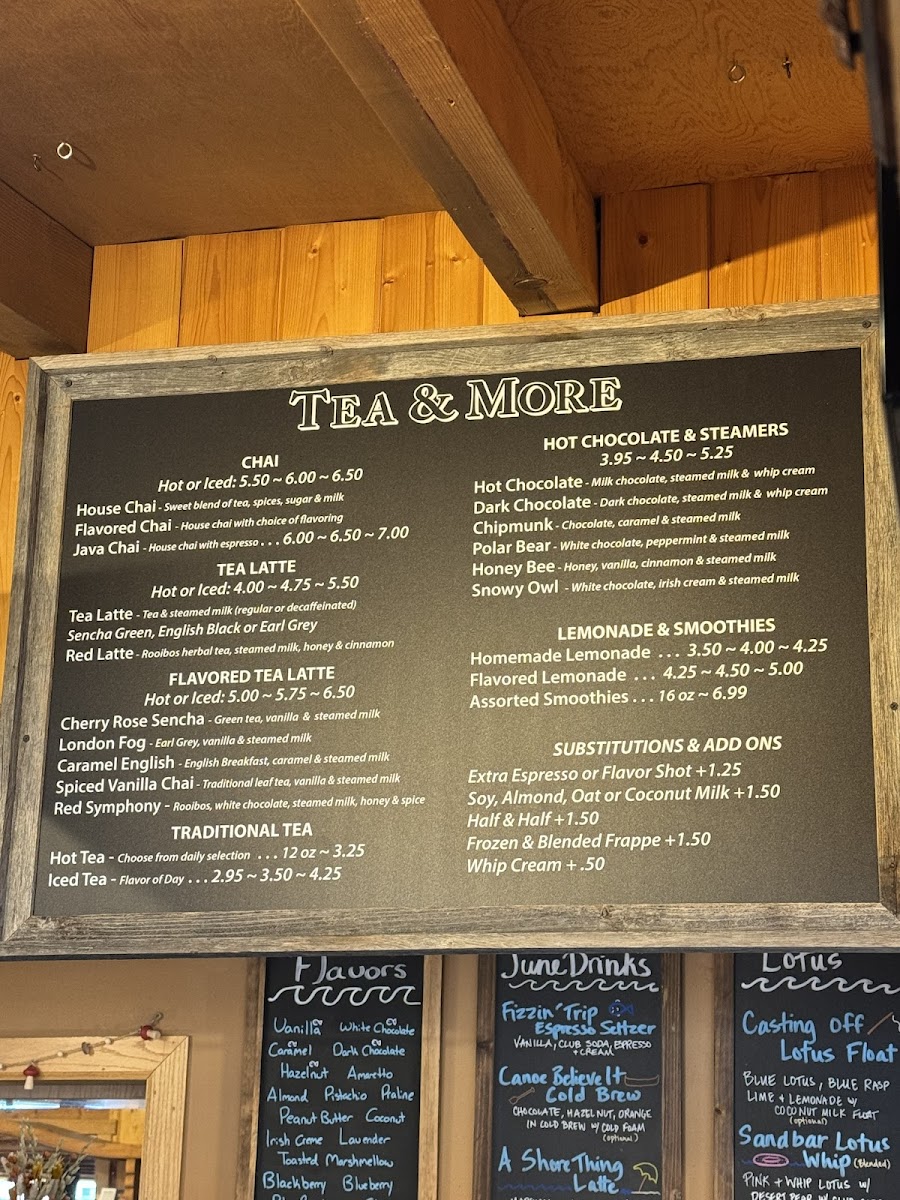 TEA & MORE
CHAI
Hot or Iced: 5.50 ~ 6.00 ~ 6.50
House Chai - Sweet blend of tea, spices, sugar & milk
Flavored Chai - House chai with choice of flavoring
Java Chai - House chai with espresso . . . 6.00 ~ 6.50 ~ 7.00
TEA LATTE
Hot or Iced: 4.00 ~ 4.75 ~ 5.50
Tea Latte - Tea & steamed milk (regular or decaffeinated)
Sencha Green, English Black or Earl Grey
Red Latte - Rooibos herbal tea, steamed milk, honey & cinnamon
FLAVORED TEA LATTE
Hot or Iced: 5.00 ~ 5.75 ~ 6.50
Cherry Rose Sencha - Green tea, vanilla & steamed milk
London Fog - Earl Grey, vanilla & steamed milk
Caramel English - English Breakfast, caramel & steamed milk
Spiced Vanilla Chai - Traditional leaf tea, vanilla & steamed milk
Red Symphony - Rooibos, white chocolate, steamed milk, honey & spice
TRADITIONAL TEA
Hot Tea - Choose from daily selection . . . 12 oz ~ 3.25
Iced Tea - Flavor of Day . . . 2.95 ~ 3.50 ~ 4.25
HOT CHOCOLATE & STEAMERS
3.95 ~ 4.50 ~ 5.25
Hot Chocolate - Milk chocolate, steamed milk & whip cream
Dark Chocolate - Dark chocolate, steamed milk & whip cream
Chipmunk - Chocolate, caramel & steamed milk
Polar Bear - White chocolate, peppermint & steamed milk
Honey Bee - Honey, vanilla, cinnamon & steamed milk
Snowy Owl - White chocolate, irish cream & steamed milk
LEMONADE & SMOOTHIES
Homemade Lemonade . . . 3.50 ~ 4.00 ~ 4.25
Flavored Lemonade . . . 4.25 ~ 4.50 ~ 5.00
Assorted Smoothies . . . 16 oz ~ 6.99
SUBSTITUTIONS & ADD ONS
Extra Espresso or Flavor Shot +1.25
Soy, Almond, Oat or Coconut Milk +1.50
Half & Half +1.50
Frozen & Blended Frappe +1.50
Whip Cream + .50
Flavors
Vanilla White Chocolate
Caramel Dark Chocolate
Hazelnut Amaretto
Almond Pistachio Praline
Peanut Butter Coconut
Irish Creme Lavender
Toasted Marshmellow
Blackberry Blueberry
June Drinks
Fizzin' Trip
Espresso Seltzer
VANILLA, CLUB SODA, ESPRESSO
+ CREAM
Canoe Believe It
Cold Brew
CHOCOLATE, HAZELNUT, ORANGE
IN COLD BREW W/ COLD FOAM
(optional)
A Shore Thing
Latte
Lotus
Casting Off
Lotus Float
BLUE LOTUS, BLUE RASP
LIME + LEMONADE W/
COCONUT MILK FLOAT
(optional)
Sandbar Lotus
Whip (Blended)
PINK + WHIP LOTUS W/
DESERT PEAR W/